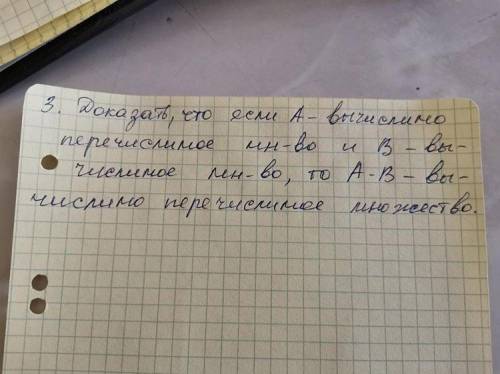 3. Доказать, что если А - вычислимо
перечислимое мн-во и В - вы-
числимое мн-во, то А-В - вы-
числимо перечислимое множество.